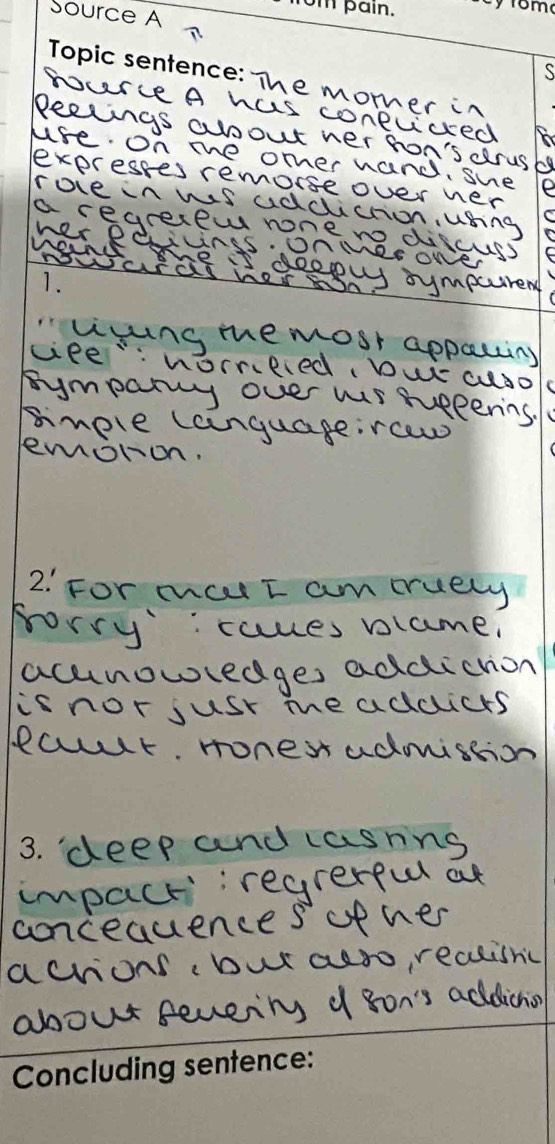 Source A
pain.
Topic sentence: The mother in
source A has conflicted
feelings about her son's drug
use. On the other hand, she
expresses remorse over her
role in his addiction, using
a regretful tone to discuss
her feelings. On the other
hand she is deeply sympathetic
towards her son.
1.
"living the most appalling
life": horrified, but also
sympathy over his suffering.
simple language: raw
emotion.
2.' For that I am truely
sorry' : takes blame,
acknowledges addiction
is not just the addicts
fault. Honest admission
3. 'deep and lasting
impact' : regretful at
concequences of her
actions, but also, realistic
about severity of son's addiction
Concluding sentence: